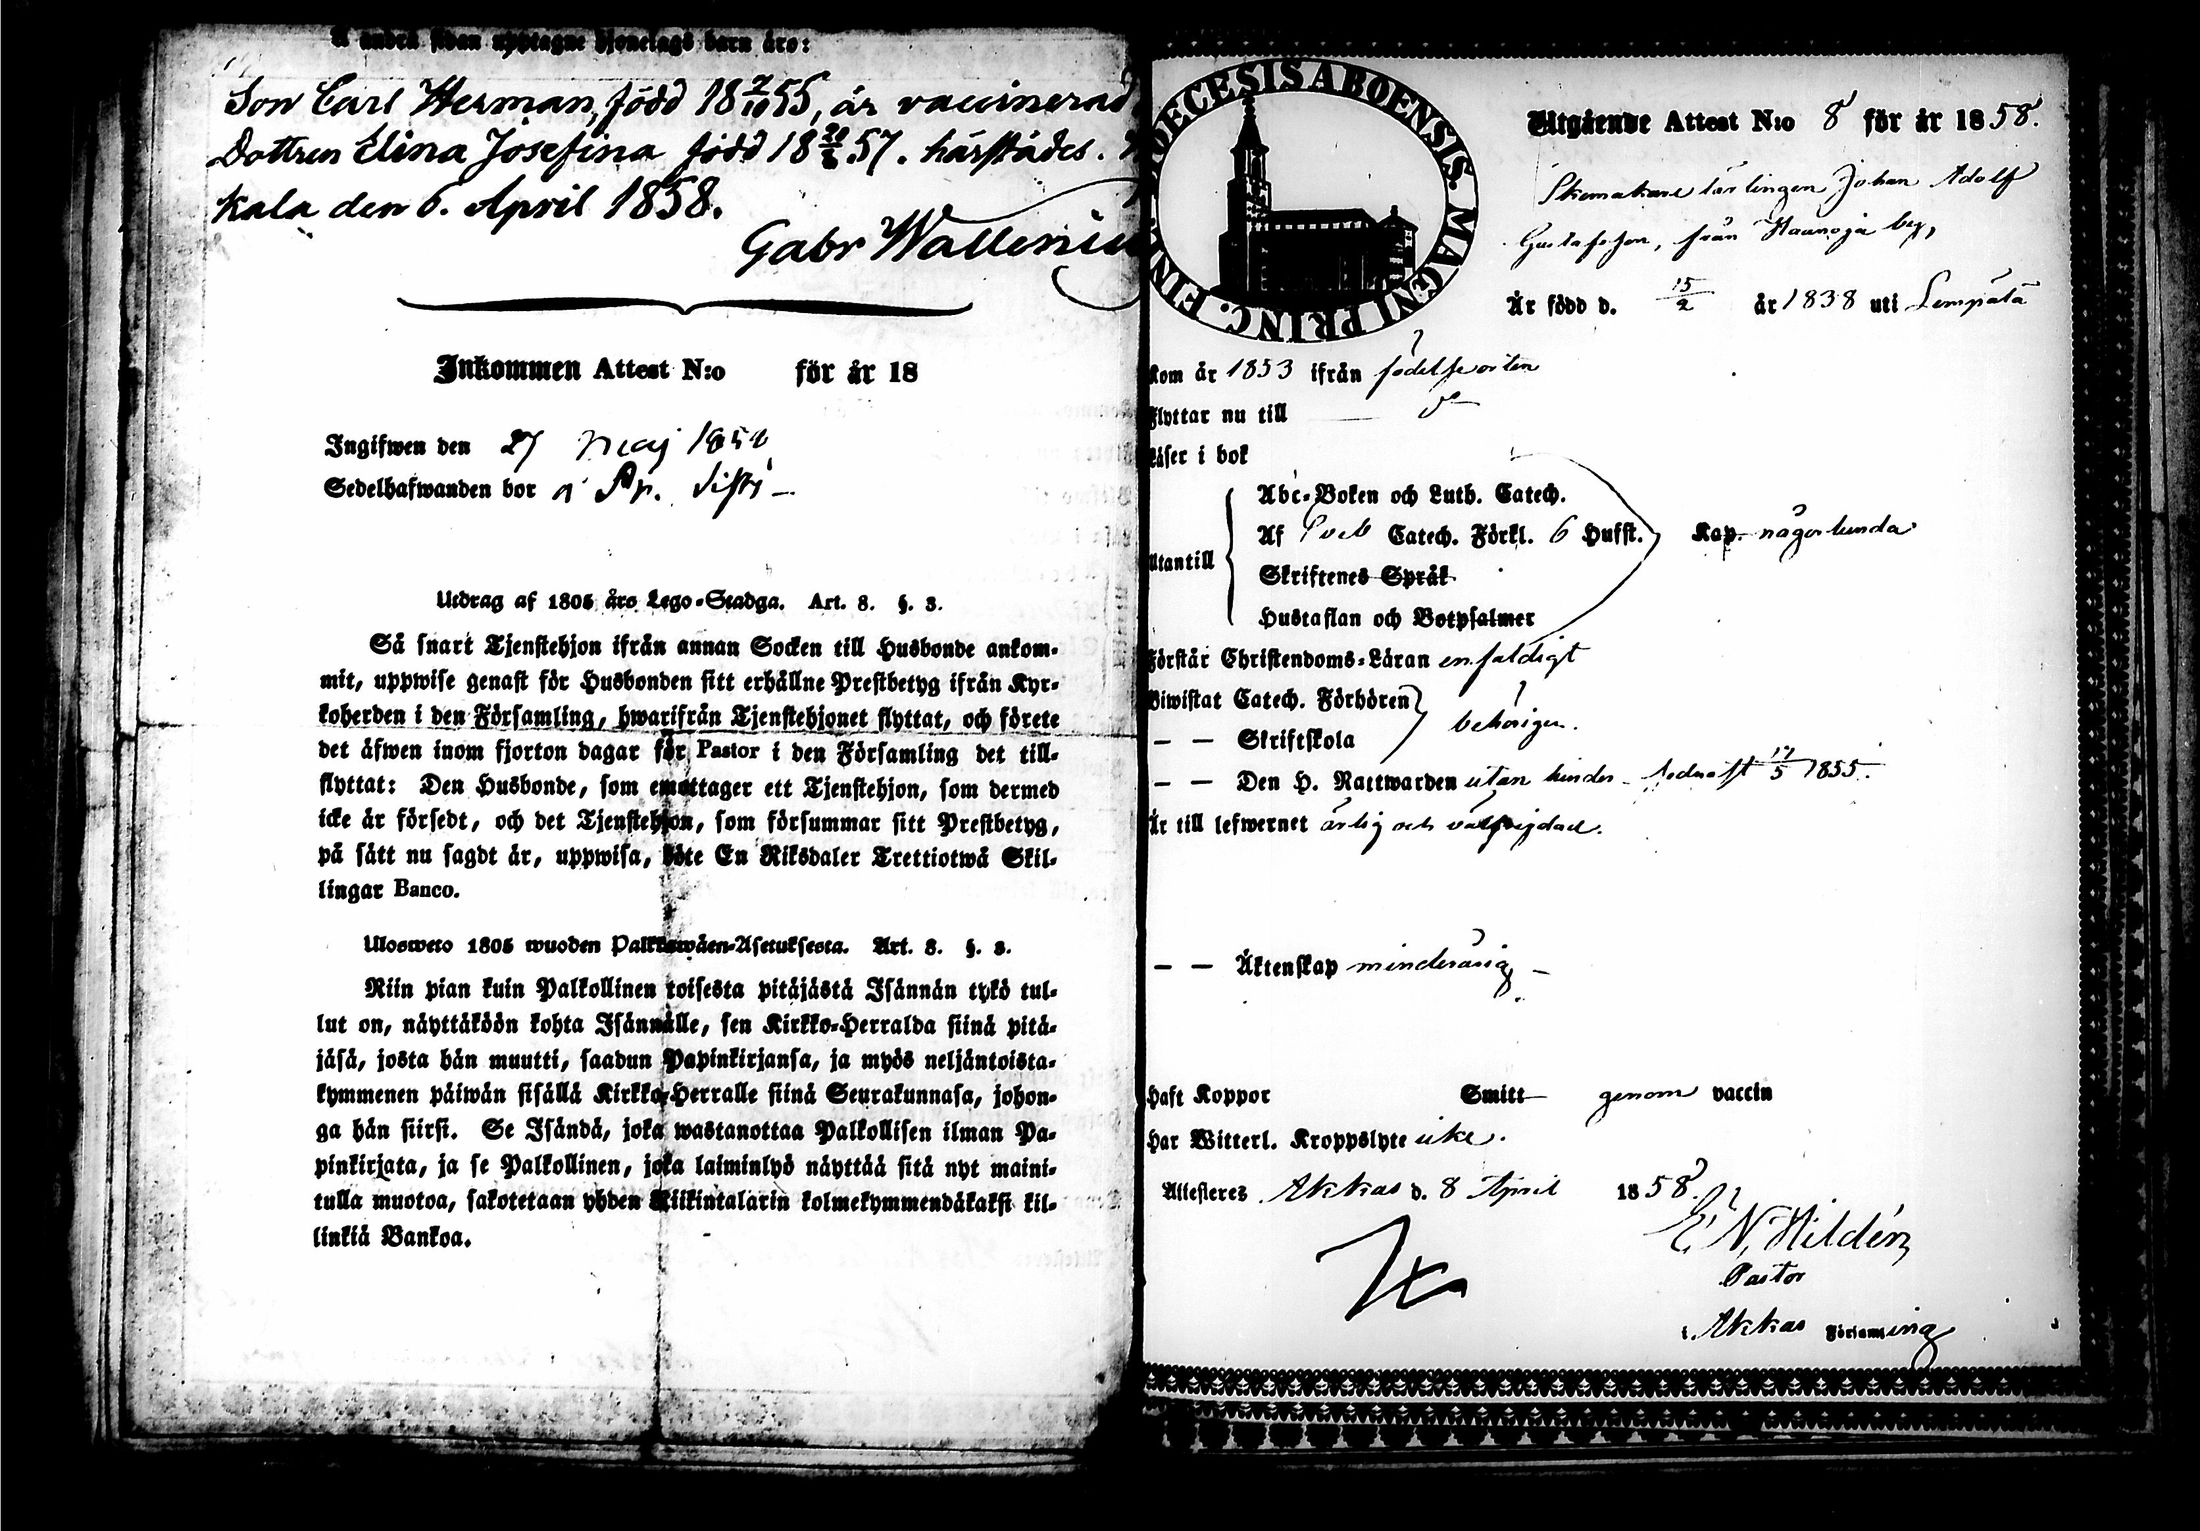 å andra sidan upptagne hjonelags barn äro:
Son Carl Herman, född 18 2/10 55, är vaccinerad
Dottren Elina Josefina född 18 20/2 57. härstädes.
kala den 6. April 1858.
Gabr Walleniu
Inkommen Attest N:o för år 18
Ingifwen den 27 Maj 1858
Sedelhafwanden bor
Utdrag af 1805 års Lego-Stadga. Art. 8. §. 3.
Så snart Tjenstehjon ifrån annan Socken till Husbonde ankom-
mit, uppwise genast för Husbonden sitt erhållne Prestbetyg ifrån Kyr-
koherden i den Församling, hwarifrån Tjenstehjonet flyttat, och förete
det äfwen inom fjorton dagar för Pastor i den Församling det till-
flyttat: Den Husbonde, som emottager ett Tjenstehjon, som dermed
icke är försedt, och det Tjenstehjon, som försummar sitt Prestbetyg,
på sätt nu sagdt är, uppwisa, böte En Riksdaler Trettiotwå Skil-
lingar Banco.
Ulosweto 1805 wuoden Palkkawäen-Asetuksesta. Art. 8. §. 3.
Niin pian kuin Palkollinen toisesta pitäjästä Isännän tykö tul-
lut on, näyttäköön kohta Isännälle, sen Kirkko-Herralda siinä pitä-
jäsä, josta hän muutti, saadun Papinkirjansa, ja myös neljäntoista-
kymmenen päiwän sisällä Kirkko-Herralle siinä Seurakunnasa, johon-
ga hän siirsi. Se Isändä, joka wastanottaa Palkollisen ilman Pa-
pinkirjata, ja se Palkollinen, joka laiminlyö näyttää sitä nyt maini-
tulla muotoa, sakotetaan yhden Riikintalarin kolmekymmendäkaksi kil-
linkiä Bankoa.
DIOECESIS ABOENSIS. MAGNI PRINC. FIN
Utgående Attest N:o 8 för år 1858.
Skomakare lärlingen Johan Adolf
Gustafsson, från Haunoja by,
Är född d. 15/2 år 1838 uti Lempälä
kom år 1853 ifrån födelseorten
Flyttar nu till do
Läser i bok
Abc-Boken och Luth. Catech.
Af Sveb Catech. Förkl. 6 Hufst. Kap. någorlunda
Utantill
Skriftenes Språk
Hustaflan och Botpsalmer
Förstår Christendoms-Läran enfaldigt
Biwistat Catech. Förhören
behörigen.
— — Skriftskola
— — Den H. Nattwarden utan hinder - sednast 17/5 1855.
Är till lefwernet ärlig och välfrejdad.
— — Äktenskap minderårig —
Haft Koppor Smitt genom vaccin
Har Witterl. Kroppslyte icke.
Attesteres Akkas d. 8 April 1858.
E. N. Hildén
Pastor
i Akkas Församling